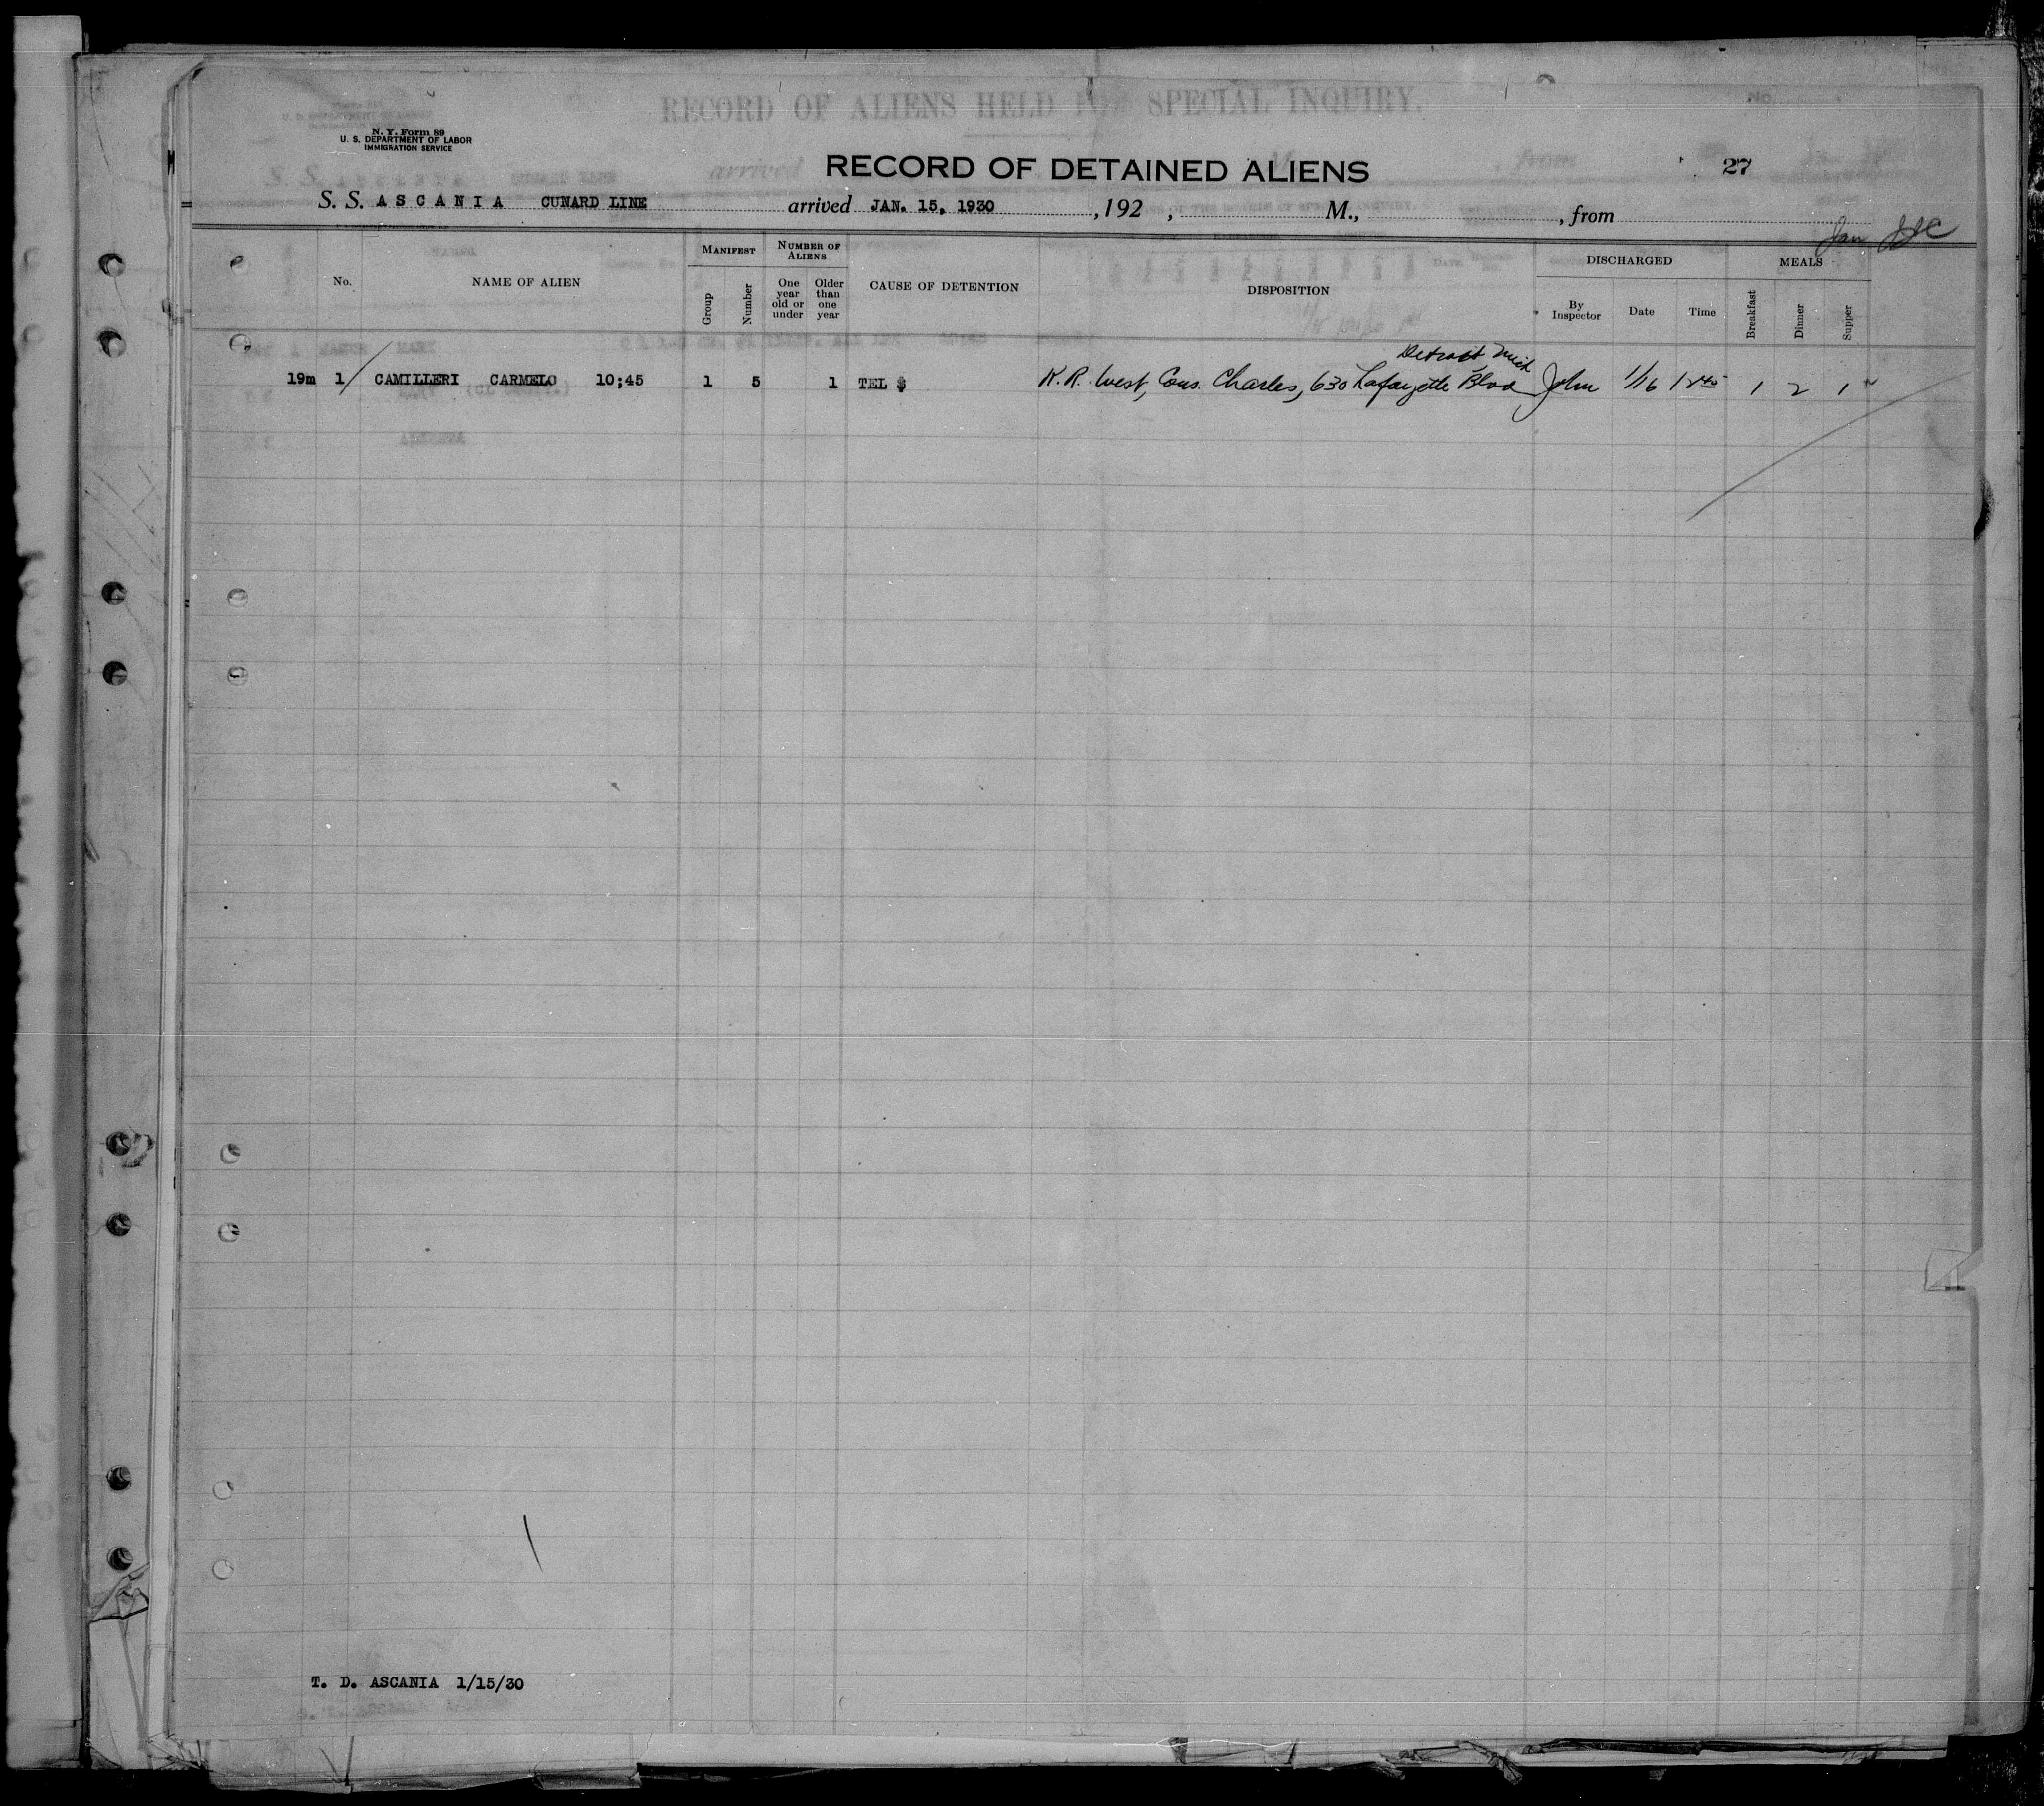 RECORD OF ALIENS HELD FOR SPECIAL INQUIRY.
N. Y. Form 89
U. S. DEPARTMENT OF LABOR
IMMIGRATION SERVICE
RECORD OF DETAINED ALIENS
27
S. S. ASCANIA CUNARD LINE arrived JAN. 15, 1930 , 192 , M., , from
Jan
No. NAME OF ALIEN MANIFEST Group Number NUMBER OF ALIENS One year old or under Older than one year CAUSE OF DETENTION DISPOSITION DISCHARGED By Inspector Date Time MEALS Breakfast Dinner Supper
Detroit Mich
19m 1/ CAMILLERI CARMELO 10;45 1 5 1 TEL $ R.R. West, Cous. Charles, 630 Lafayette Blvd John 1/16 1 2 1
T. D. ASCANIA 1/15/30